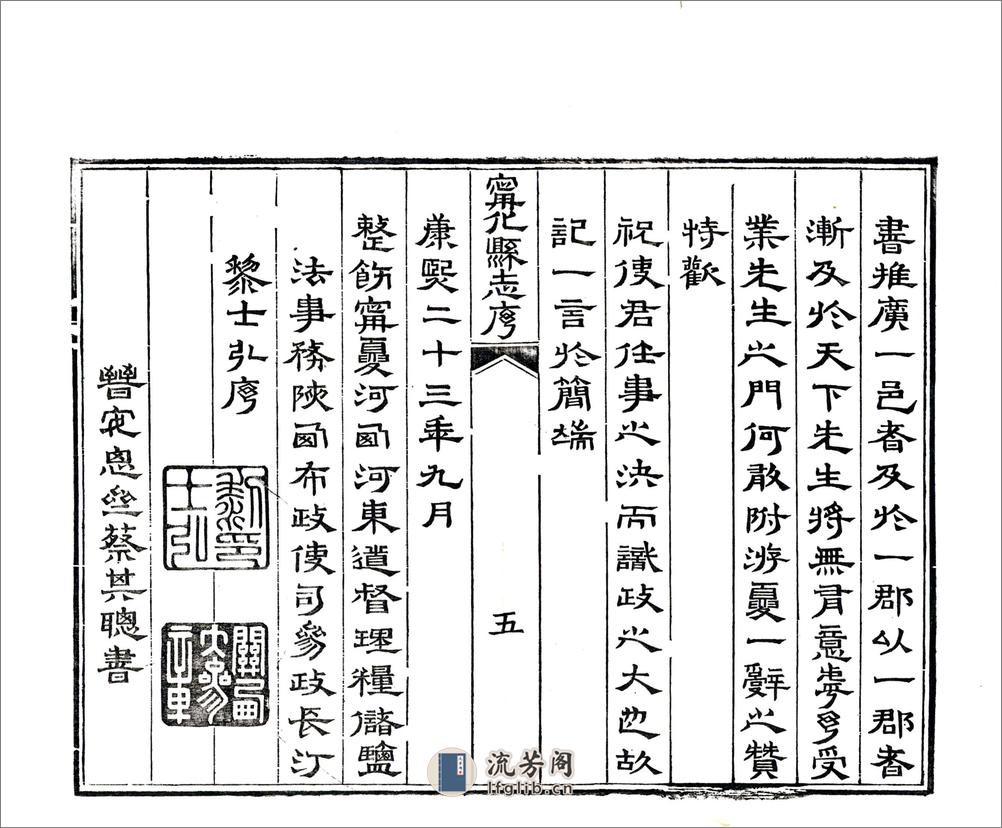 書推廣一邑者及於一郡以一郡者
漸及於天下先生將無有意乎受
業先生之門何敢附游夏一辭之贊
特歡
祝使君任事之決而識政之大也故
記一言於簡端
甯化縣志序
五
康熙二十三年九月
整飭甯夏河西河東道督理糧儲鹽
法事務陝西布政使司參政長汀
黎士弘序
黎士弘印
晉安蔡其聰書
流芳阁
lfglib.cn